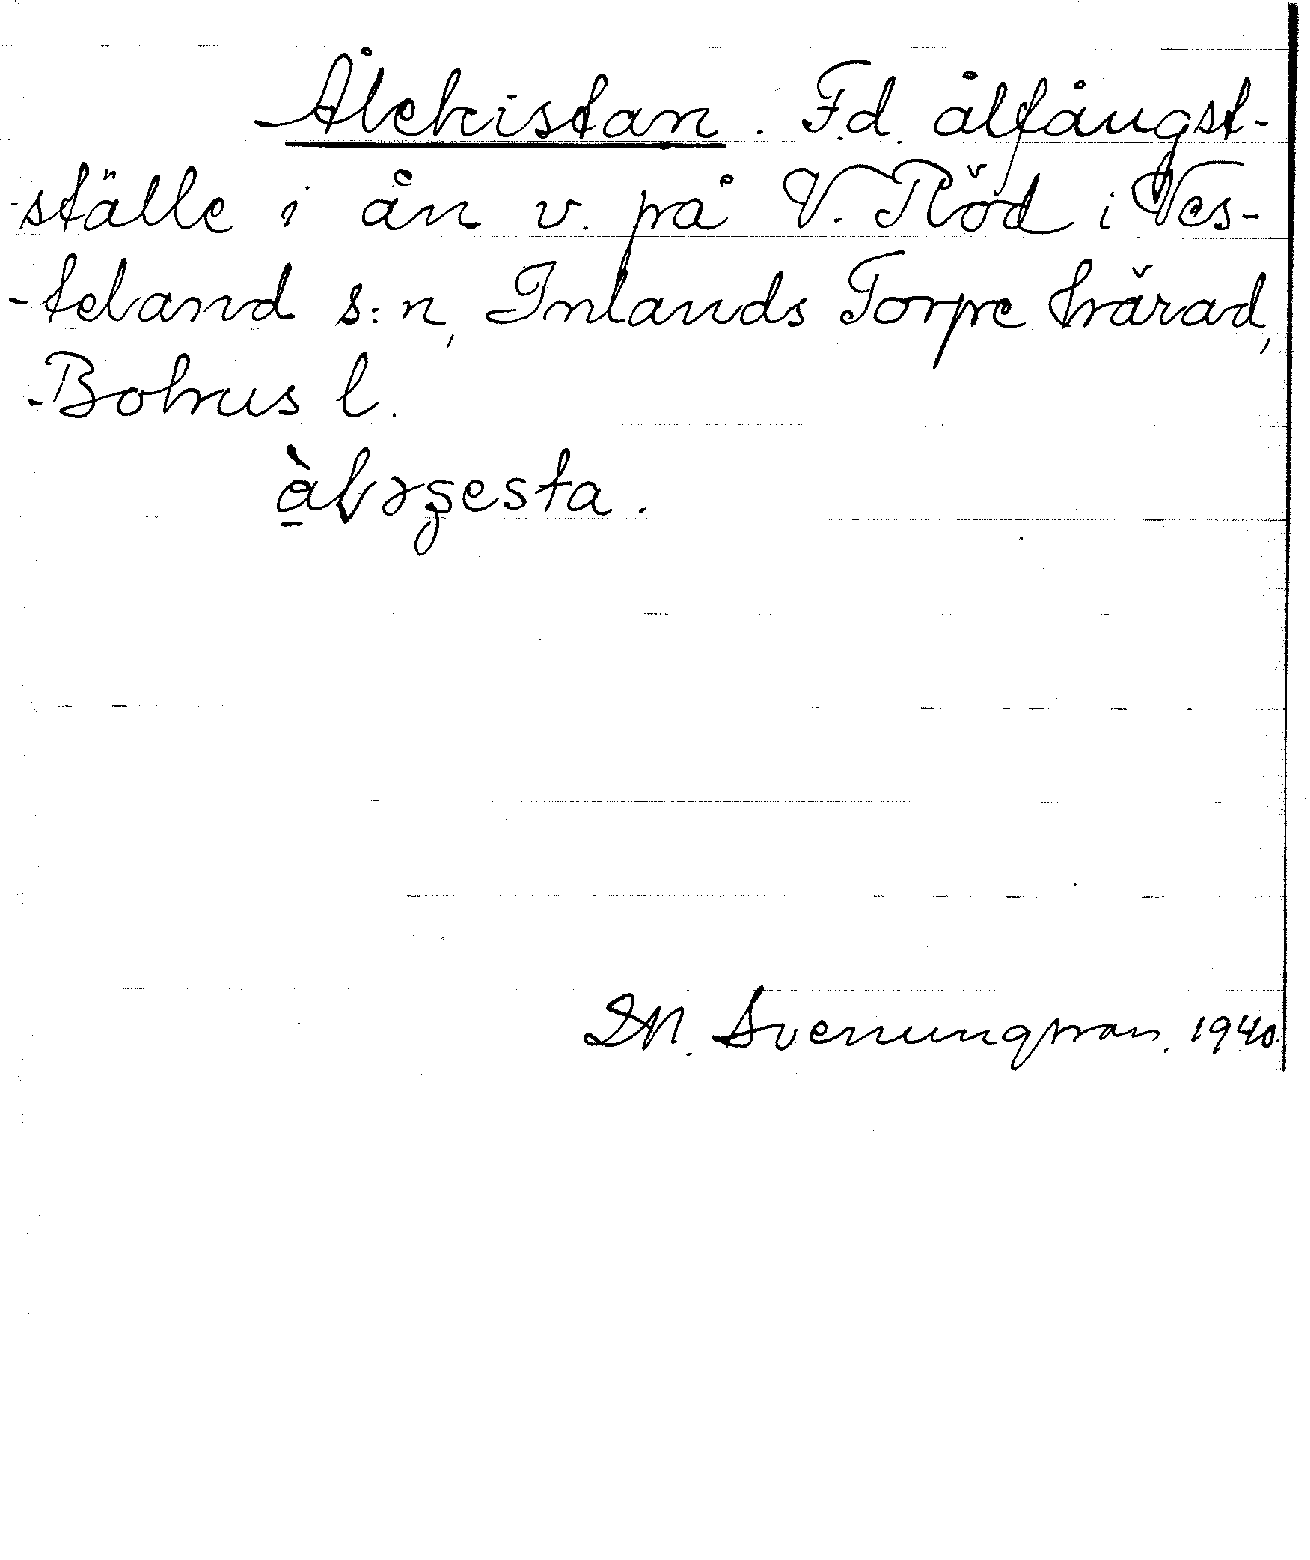 Ålekistan. F.d. ålfångst-
ställe i ån v. på V. Röd i Ves-
teland s:n, Inlands Torpe härad,
Bohus l.
Svenungsson. 1940.